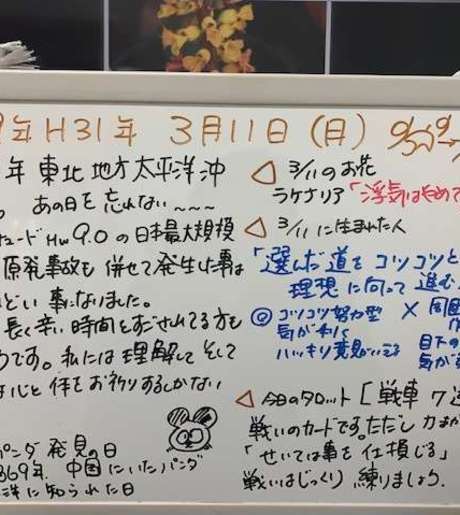 9年 H31年 3月11日(月)
年 東北地方太平洋沖
あの日を忘れない~~~~
9.0の日本最大規模
原発事故も併せて発生した事は
どい事になりました。
長く辛い時間をすごされてる方も
うです。私には理解して そして
心と体をお祈りするしかない
パンダ発見の日
869年. 中国にいたパンダ
洋に知られた日
△ 3/11のお花
ラケナリア「浮気はやめて
△ 3/11に生まれた人
「選んだ道をコツコツと
理想に向って進む
◎コツコツ努力型
気が利く
ハッキリ意見がいえる
× 周囲
目下の
気が
△ 今日のタロット [戦車 7
戦いのカードです。ただし 力まか
「せいては事を仕損じる」
戦いはじっくり 練りましょう.